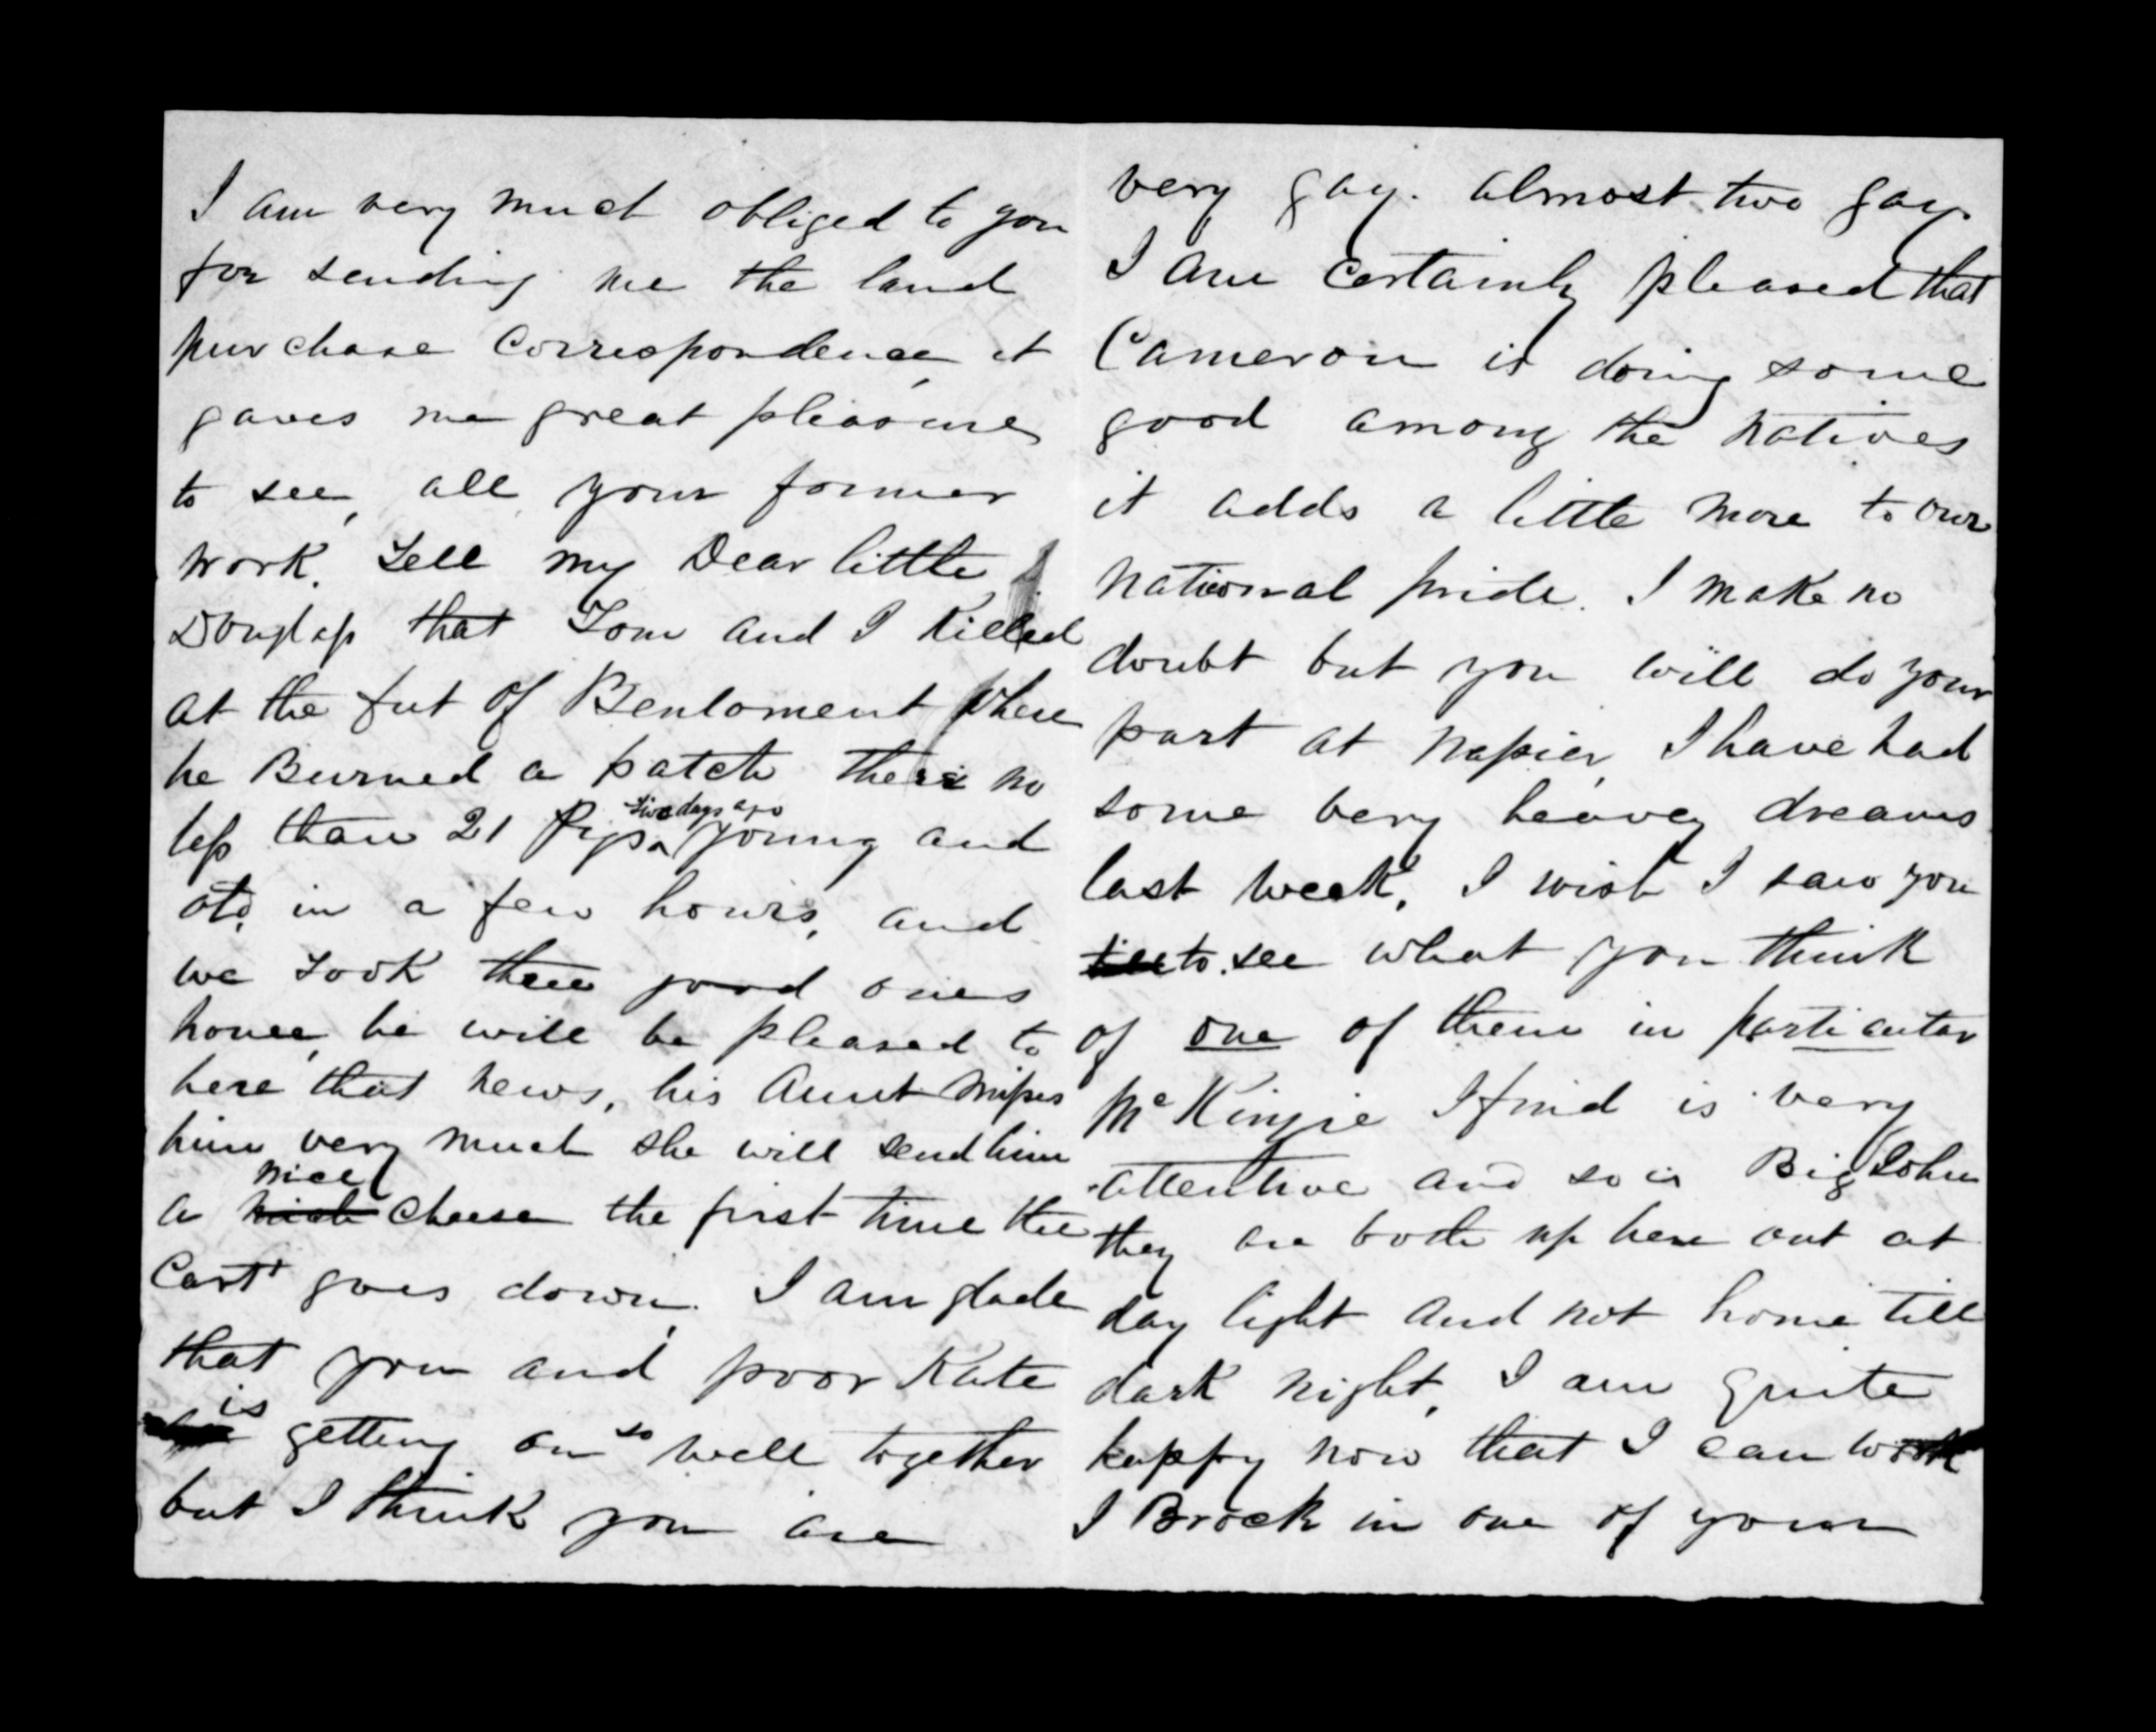 I am very much obliged to you
for sending me the land
purchase Correspondence, it
gaves me great pleasure
to see, all your former
work. Tell my Dear little
Douglass that Tom and I Killed
at the fut of Benloment where
he Burned a patch there no
less than 21 Pigs five days ago young and
old, in a few hours, and
we took three good ones
home, he will be pleased to
here that news, his Aunt misses
him very much she will send him
a nice Cheese the first time the
Cart goes down. I am glade
that you and poor Kate
is getting on so well together
but I think you are
very gay. almost two gay.
I am certainly pleased that
Cameron is doing some
good among the natives
it adds a little more to our
national pride. I make no
doubt but you will do your
part at Napier, I have had
some very heavey dreams
last week, I wish I saw you
to see what you think
of one of them in particular
McKinzie I find is very
attentive and so is Big John
they are both up here out at
day light and not home till
dark night, I am quite
happy now that I can work
I Brock in one of your